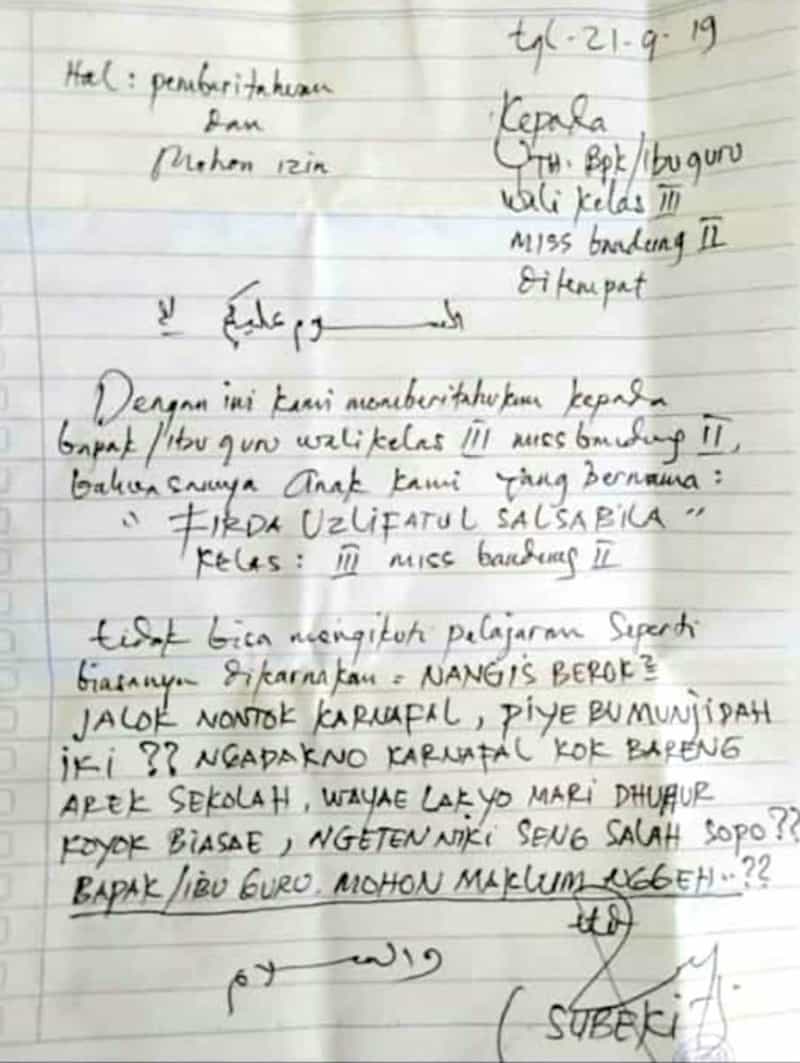 tgl. 21-9-19
Hal : pemberitahuan
dan
Mohon izin
Kepada
YTH. Bpk/ibu guru
wali kelas III
MISS bandung II
ditempat
السلام عليكم
Dengan ini kami memberitahukan kepada
bapak/ibu guru wali kelas III miss bandung II,
bahwasannya anak kami yang bernama :
" FIRDA UZLIFATUL SALSABILA "
Kelas : III miss bandung II
tidak bisa mengikuti pelajaran seperti
biasanya dikarnakan = NANGIS BEROK²
JALOK NONTOK KARNAFAL, PIYE BU MUNJIDAH
IKI ?? NGADAKNO KARNAFAL KOK BARENG
AREK SEKOLAH, WAYAE LAK YO MARI DHUHUR
KOYOK BIASAE, NGETEN NIKI SENG SALAH SOPO??
BAPAK/IBU GURU. MOHON MAKLUM NGGEH..??
ttd
والسلام
(SUBEKI